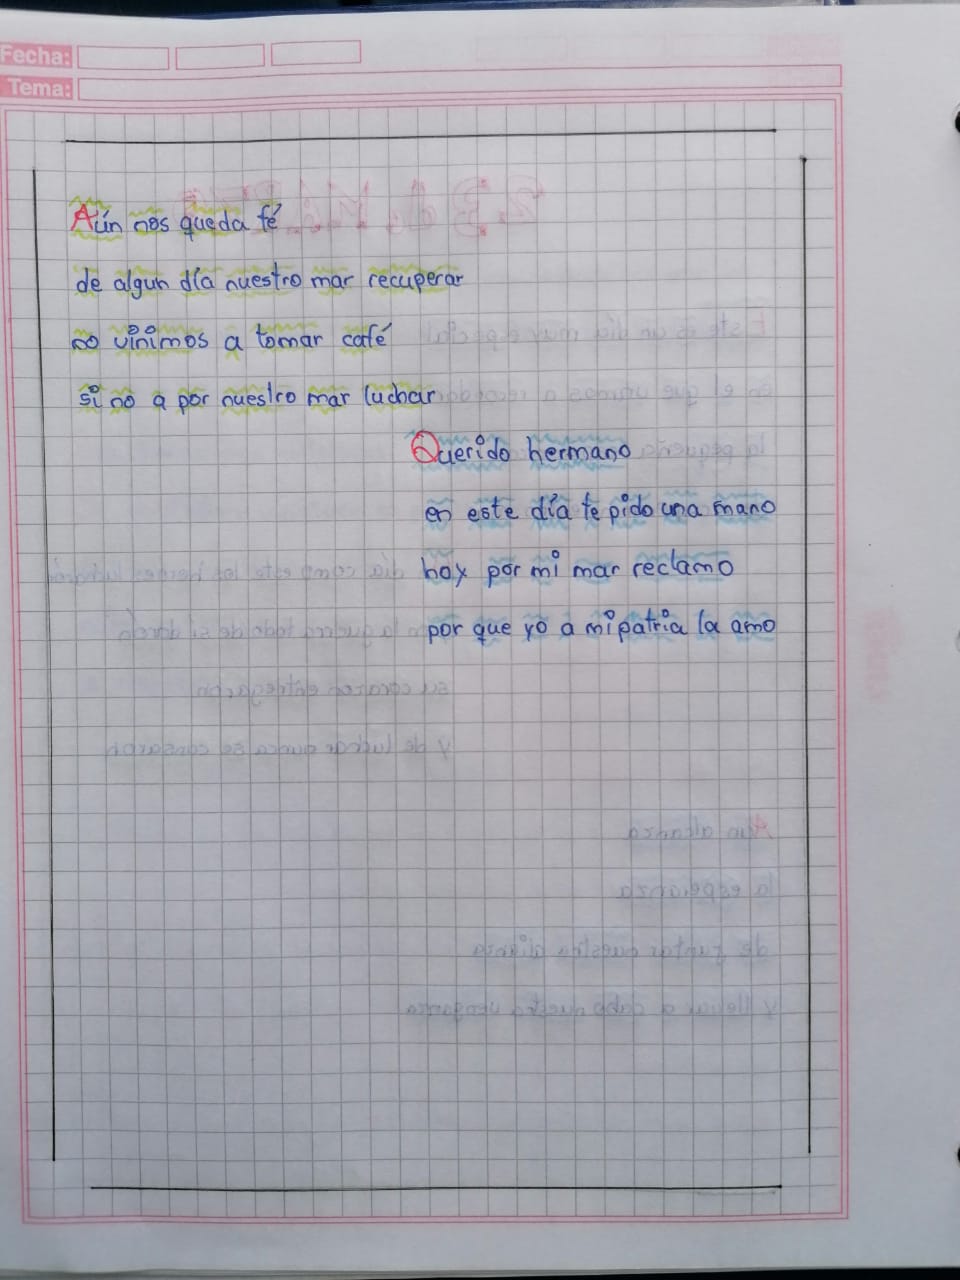 Fecha:
Tema:
Aún nos queda fé
de algun día nuestro mar recuperar
no vinimos a tomar café
si no a por nuestro mar luchar
Querido hermano
en este día te pido una mano
hoy por mi mar reclamo
por que yo a mi patria la amo